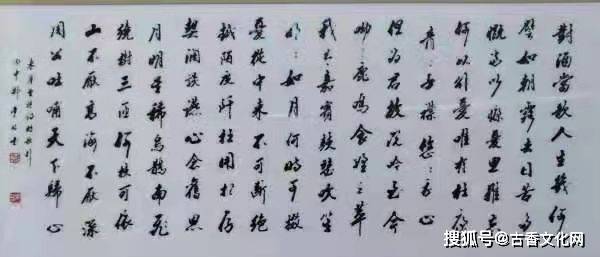 對酒當歌人生幾何
譬如朝露去日苦多
慨當以慷憂思難忘
何以解憂唯有杜康
青〻子襟悠〻我心
但為君故沉吟至今
呦〻鹿鳴食野之苹
我有嘉賓鼓瑟吹笙
明〻如月何時可掇
憂從中來不可斷絕
越陌度阡枉用相存
契闊談讌心念舊恩
月明星稀烏鵲南飛
繞樹三匝何枝可依
山不厭高海不厭深
周公吐哺天下歸心
搜狐号@古香文化网